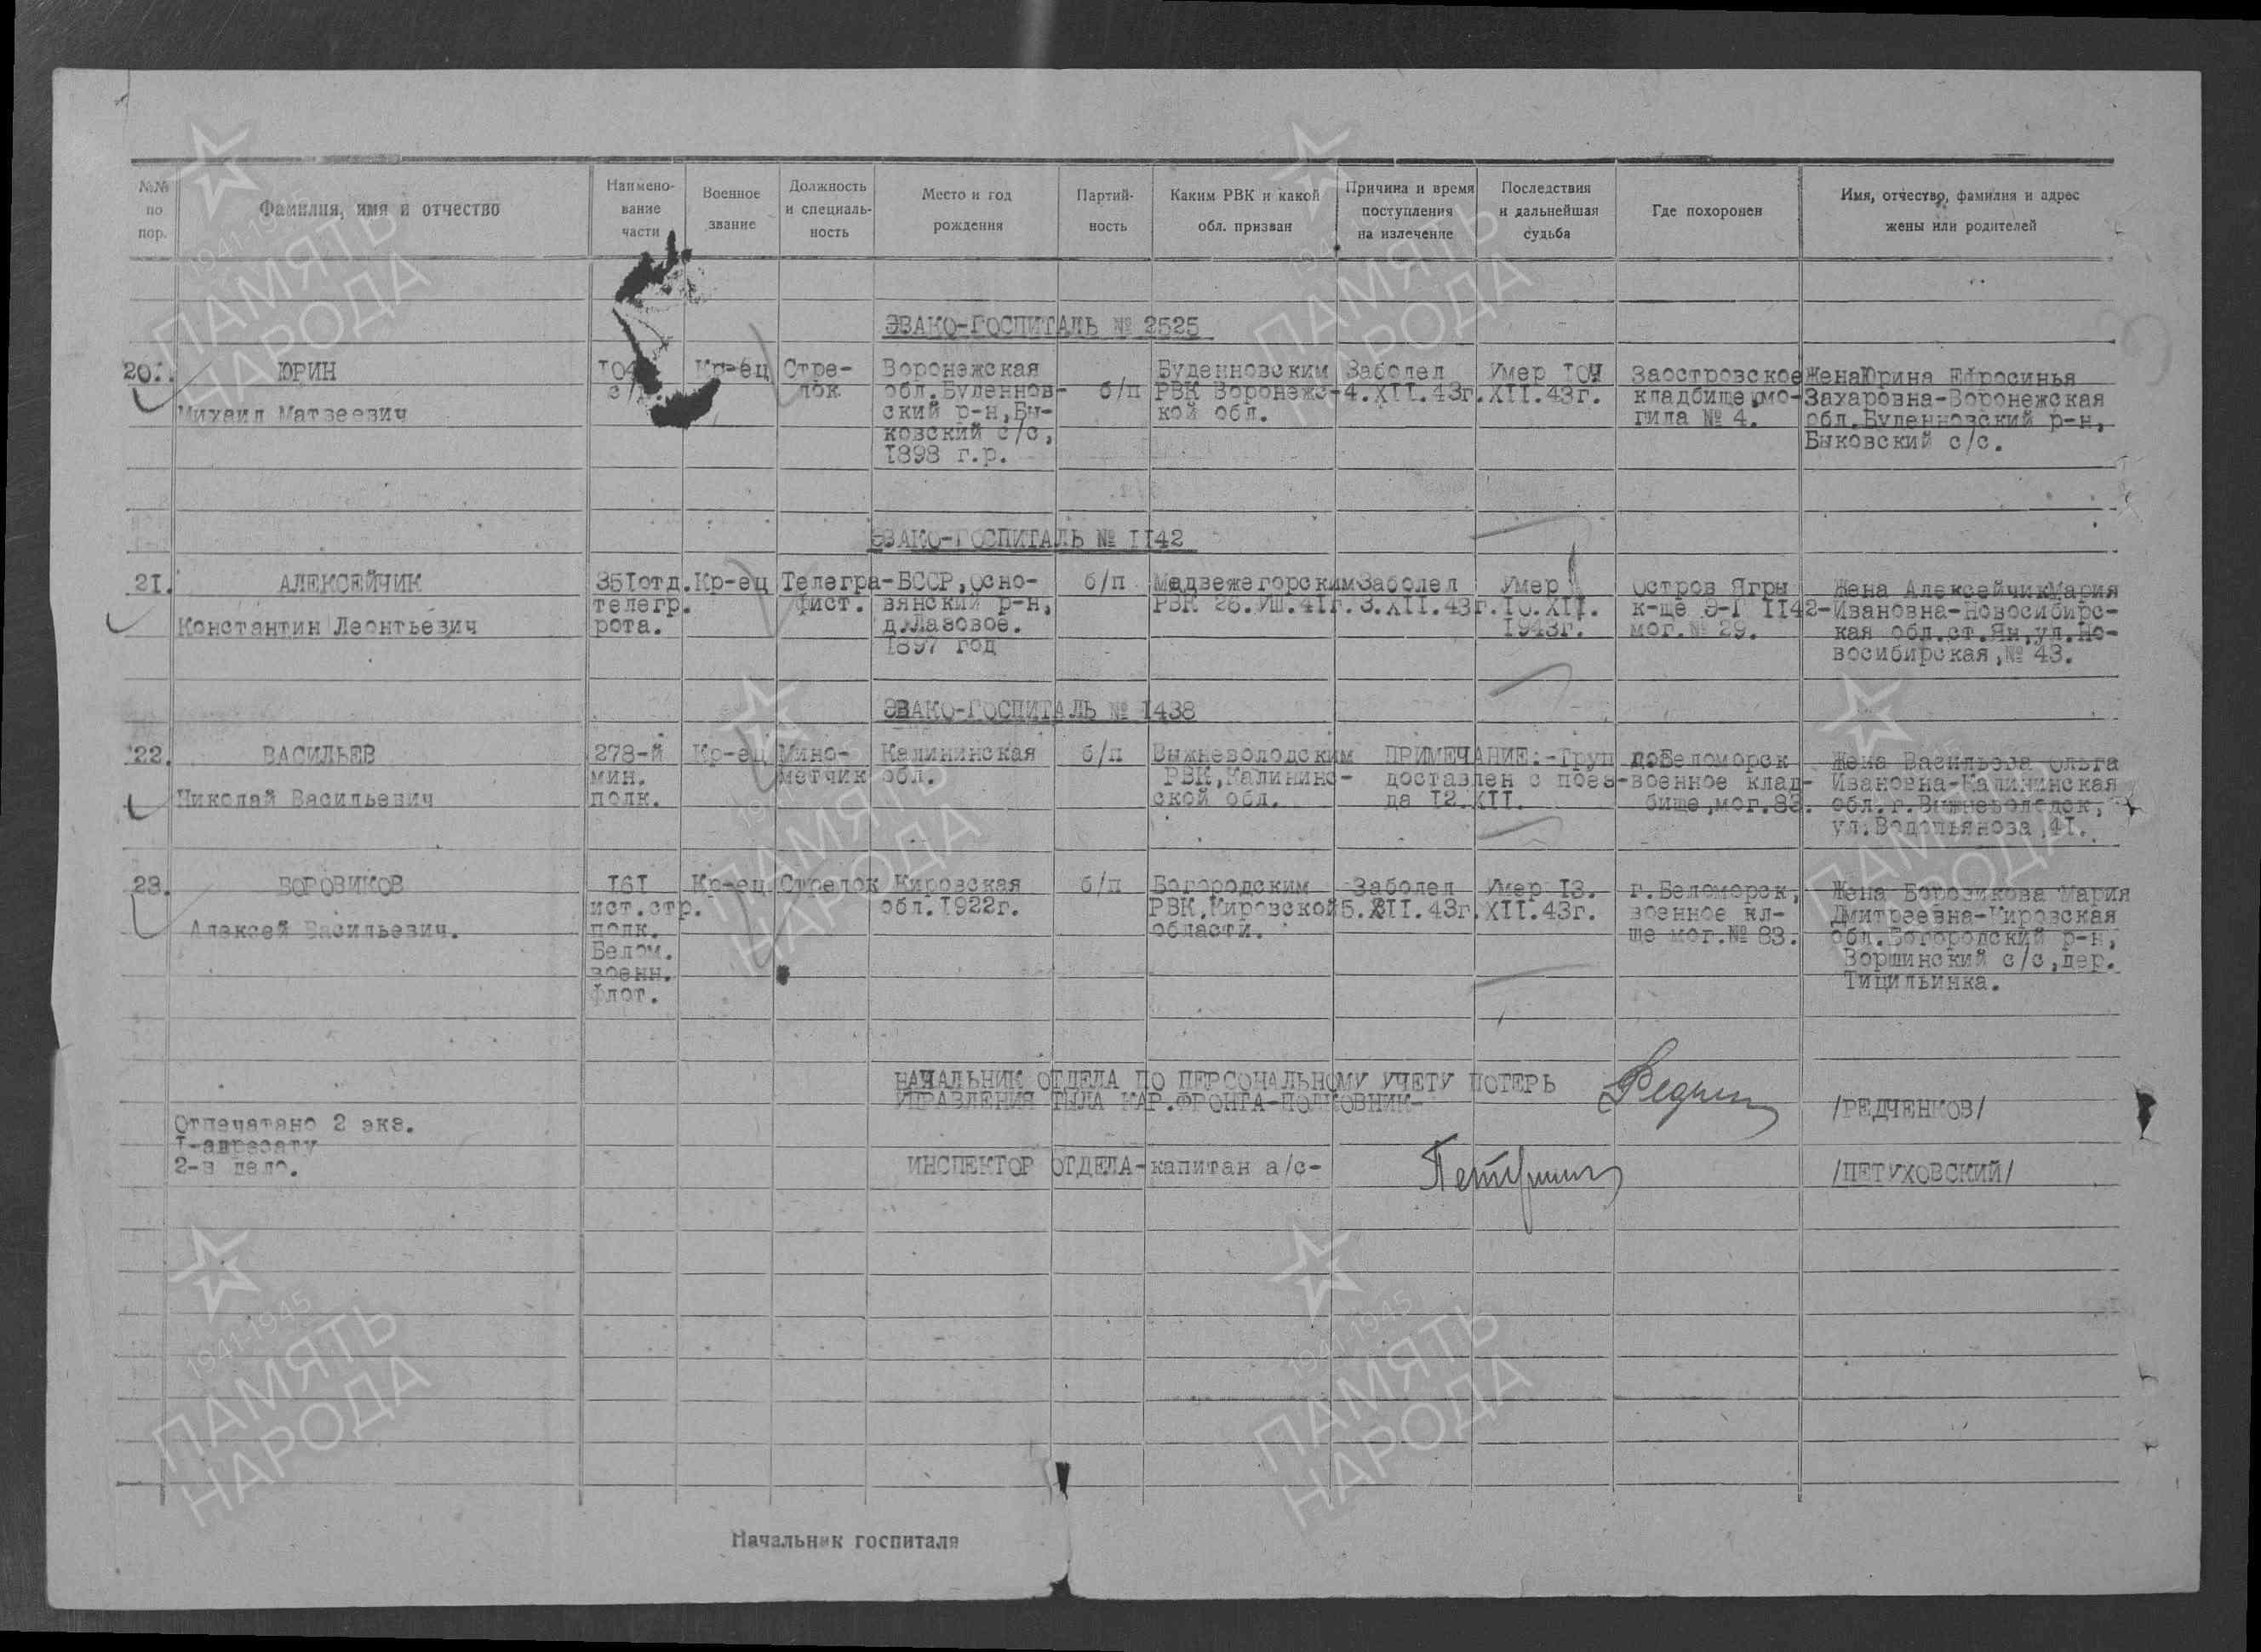 №№ по пор.
Фамилия, имя и отчество
Наимено-
вание
части
Военное
звание
Должность
и специаль-
ность
Место и год
рождения
Партий-
ность
Каким РВК и какой
обл. призван
Причина и время
поступления
на излечение
Последствия
и дальнейшая
судьба
Где похоронен
Имя, отчество, фамилия и адрес
жены или родителей
ЭВАКО-ГОСПИТАЛЬ № 2525
20.
ЮРИН
Михаил Матвеевич
Кр-ец
Стре-
лок
Воронежская
обл.Буденнов-
ский р-н,Бы-
ковский с/с,
1898 г.р.
б/п
Буденновским
РВК Воронежс-
кой обл.
Заболел
4.XII.43г.
Умер 10
XII.43г.
Заостровское
кладбище,мо-
гила № 4.
Жена Юрина Ефросинья
Захаровна-Воронежская
обл.Буденновский р-н,
Быковский с/с.
ЭВАКО-ГОСПИТАЛЬ № 1142
21.
АЛЕКСЕЙЧИК
Константин Леонтьевич
351отд.
телегр.
рота.
Кр-ец
Телегра-
фист.
БССР,Осно-
вянский р-н,
д.Лазовое.
1897 год
б/п
Медвежегорским
РВК 26.УШ.41г.
Заболел
3.XII.43г.
Умер
10.XII.
1943г.
Остров Ягры
к-ще Э-Г 1142-
мог.№ 29.
Жена Алексейчик Мария
Ивановна-Новосибирс-
кая обл.ст.Яя,ул.Но-
восибирская,№ 43.
ЭВАКО-ГОСПИТАЛЬ № 1438
22.
ВАСИЛЬЕВ
Николай Васильевич
278-й
мин.
полк.
Кр-ец
Мино-
метчик
Калининская
обл.
б/п
Выжневолодским
РВК,Калининс-
ской обл.
ПРИМЕЧАНИЕ:-Труп
доставлен с поез-
да 12.XII.
Беломорск
военное клад-
бище,мог.83.
Жена Васильева Ольга
Ивановна-Калининская
обл.г.Вижневолодск,
ул.Водопьянова,41.
23.
БОРОВИКОВ
Алексей Васильевич.
161
ист.стр.
полк.
Белом.
военн.
флот.
Кр-ец
Стрелок
Кировская
обл.1922г.
б/п
Богородским
РВК,Кировской
области.
Заболел
5.XII.43г.
Умер 13.
XII.43г.
г.Беломорск,
военное кл-
ще мог.№ 83.
Жена Боровикова Мария
Дмитреевна-Кировская
обл.Богородский р-н,
Воршинский с/с,дер.
Тицильинка.
НАЧАЛЬНИК ОТДЕЛА ПО ПЕРСОНАЛЬНОМУ УЧЕТУ ПОТЕРЬ
УПРАВЛЕНИЯ ТЫЛА КАР.ФРОНТА-ПОЛКОВНИК-
/РЕДЧЕНКОВ/
Отпечатано 2 экз.
1-адресату
2-в дело.
ИНСПЕКТОР ОТДЕЛА-капитан а/с-
/ПЕТУХОВСКИЙ/
Начальник госпиталя
1941-1945
ПАМЯТЬ
НАРОДА